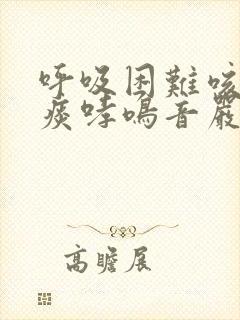 呼吸困難咳
痰哮鳴音嚴
高瞻展